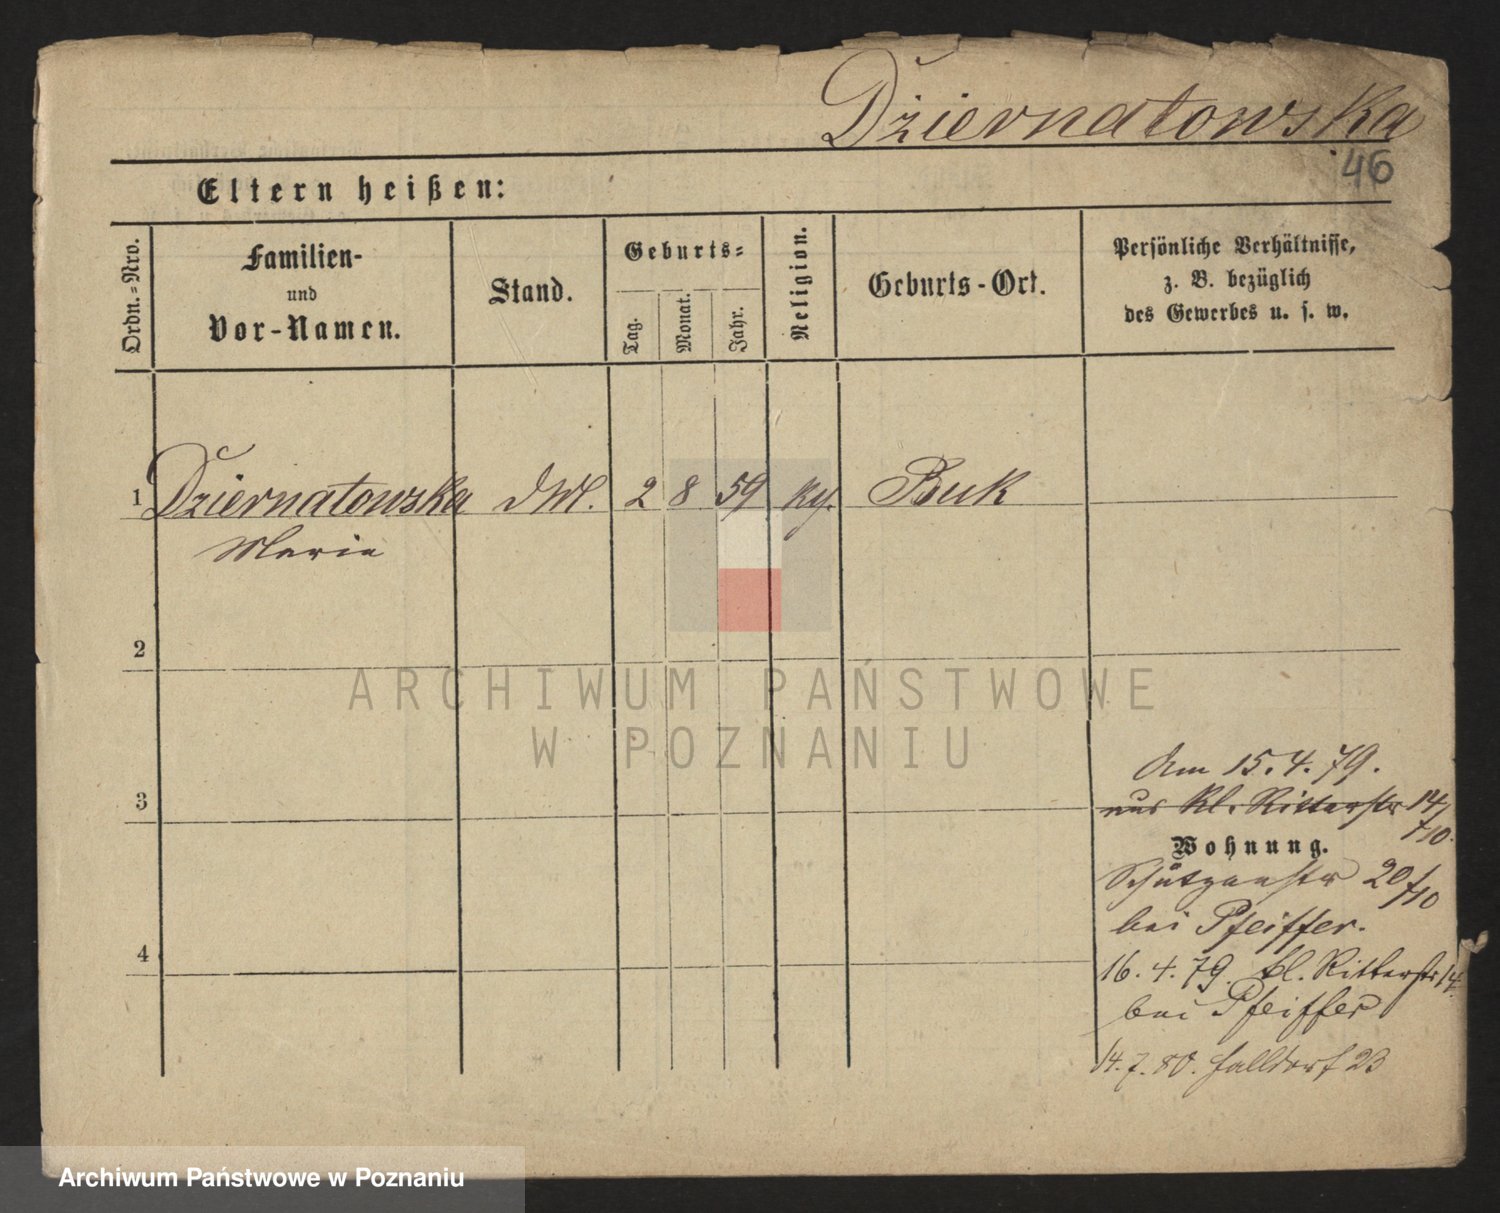 Dżiernatowska
46
Eltern heißen:
Ordn.-Nro.
Familien-
und
Vor-Namen.
Stand.
Geburts-
Tag.
Monat.
Jahr.
Religion.
Geburts-Ort.
Persönliche Verhältnisse,
z. B. bezüglich
des Gewerbes u. s. w.
1 Dziernatowska 2 8 59 Buk
Marie
2
3
4
Am 15.4.79.
aus kl. Ritterstr 14/
Wohnung.
Schützenstr 20/
bei Pfeiffer.
16.4.79. kl. Ritterstr 14.
bei Pfeiffer
14.7.80. Halldorf 23
ARCHIWUM PAŃSTWOWE
W POZNANIU
Archiwum Państwowe w Poznaniu